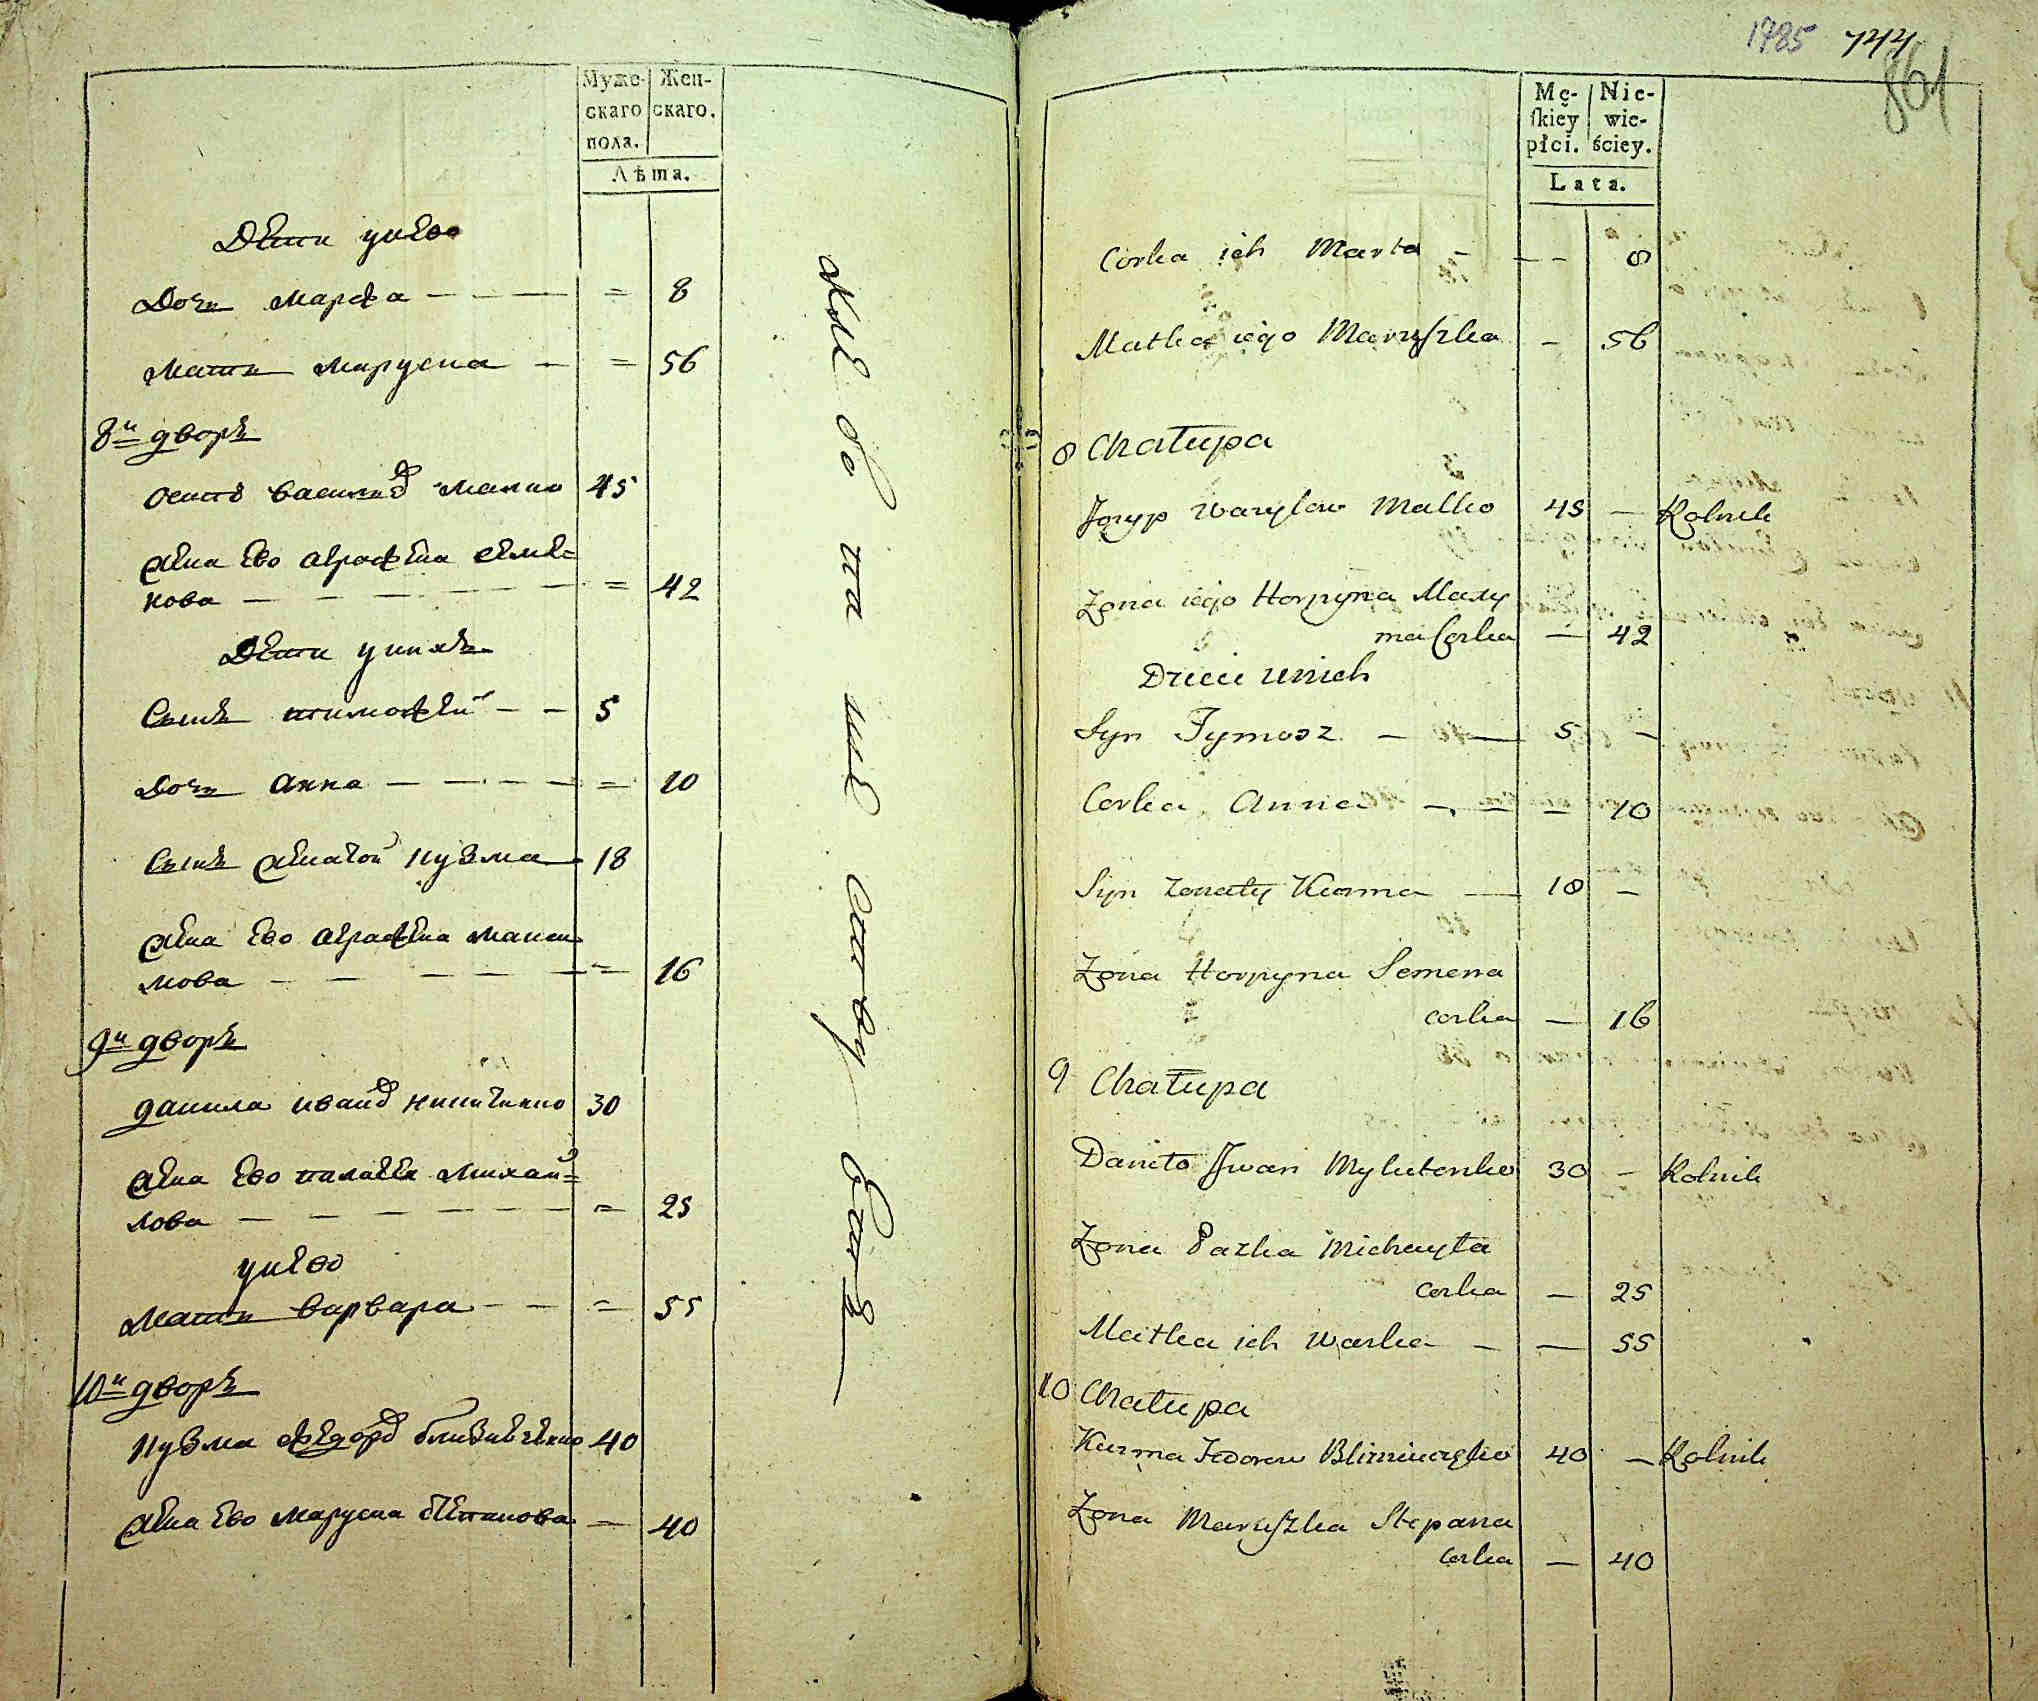 Муже-
скаго
пола.
Жен-
скаго.
Лѣта.
Дети унево
Дочь марфа — — — = 8
мать маруска — = 56
8й дворъ
осипъ васильевъ малко 45
жена ево аграфена семе=
нова — — — — — = 42
Дети унихъ
Сынъ тимофей — — 5
дочь анна — — — — = 10
Сынъ женатой кузма 18
жена ево аграфена макси
мова — — — — — = 16
9й дворъ
данила иванов 30
жена ево палажка михай=
лова — — — — — — = 25
унево
мать варвара — — = 55
10й дворъ
кузма федоров 40
жена ево маруска степанова — 40
1785 744
861
Mę-
ſkiey
płci.
Nie-
wie-
ściey.
Lata.
Corka ich Marta — — — 8
Matka iego Maruſzka — 56
8 Chałupa
Jozyp Wasylow Malko 45 — Rolnik
Zona iego Horpyna Maxy
ma Corka — 42
Dzieci unich
Syn Tymosz — — 5 —
Corka Anna — — — 10
Syn zonaty Kuzma — 18 —
Zona Horpyna Semena
corka — 16
9 Chałupa
Daniło Jwan Mykitenko 30 — Rolnik
Zona Pazka Michayła
corka — 25
Matka ich Warka — — 55
10 Chałupa
Kuzma Fedorow 40 — Rolnik
Zona Maruſzka Stepana
corka — 40